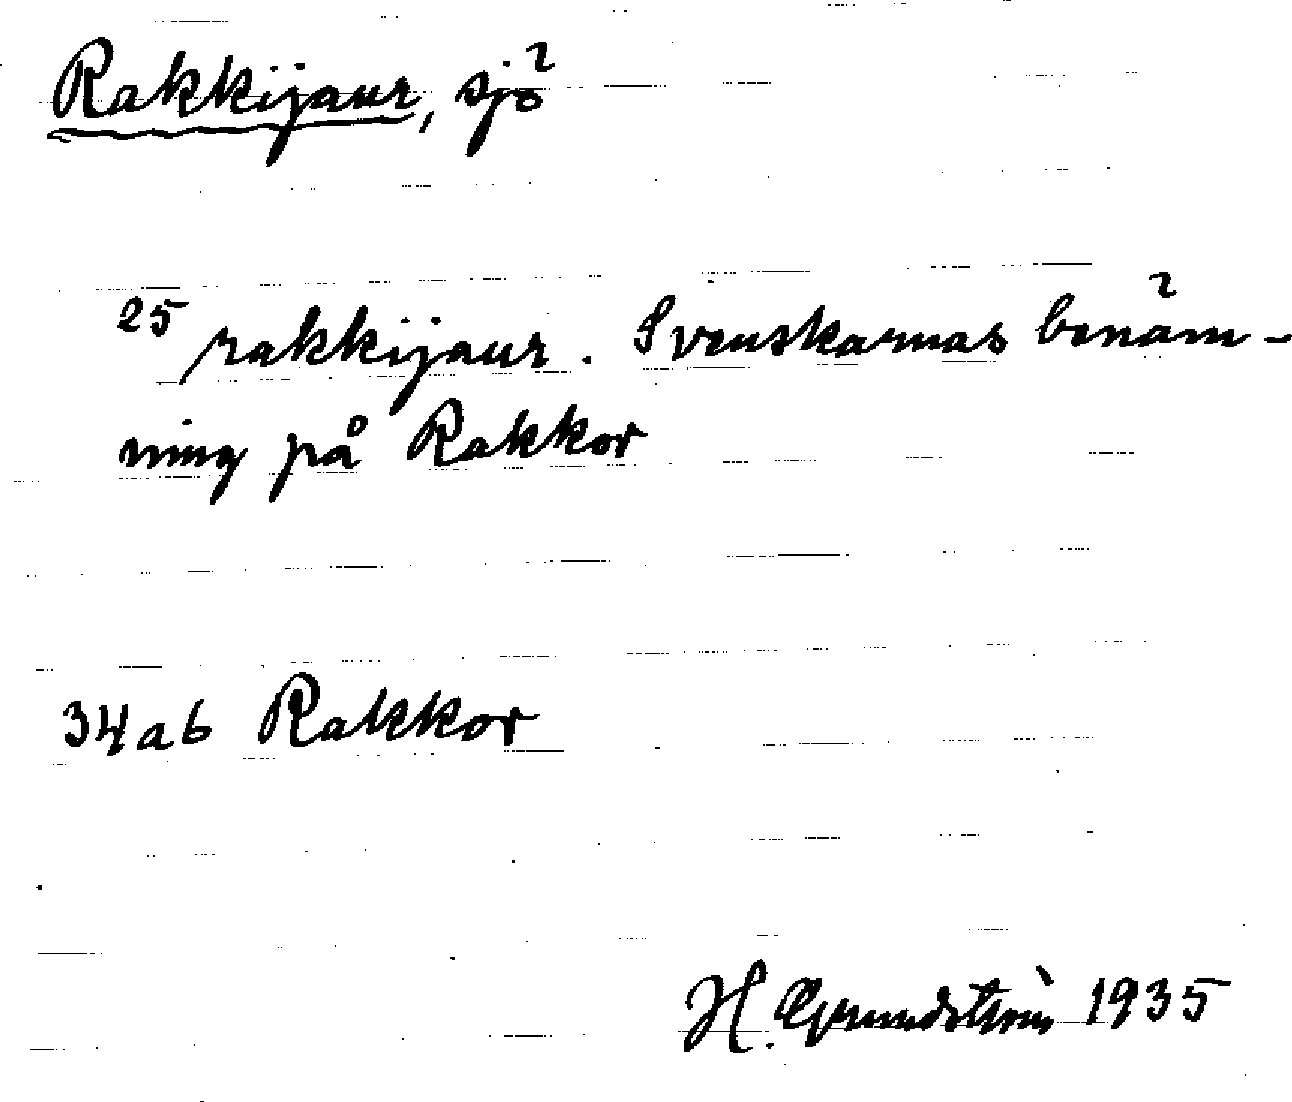 Rakkijaur, sjö
25 rakkijaur. Svenskarnas benäm-
ning på Rakkor
34ab Rakkor
H. Grundström 1935